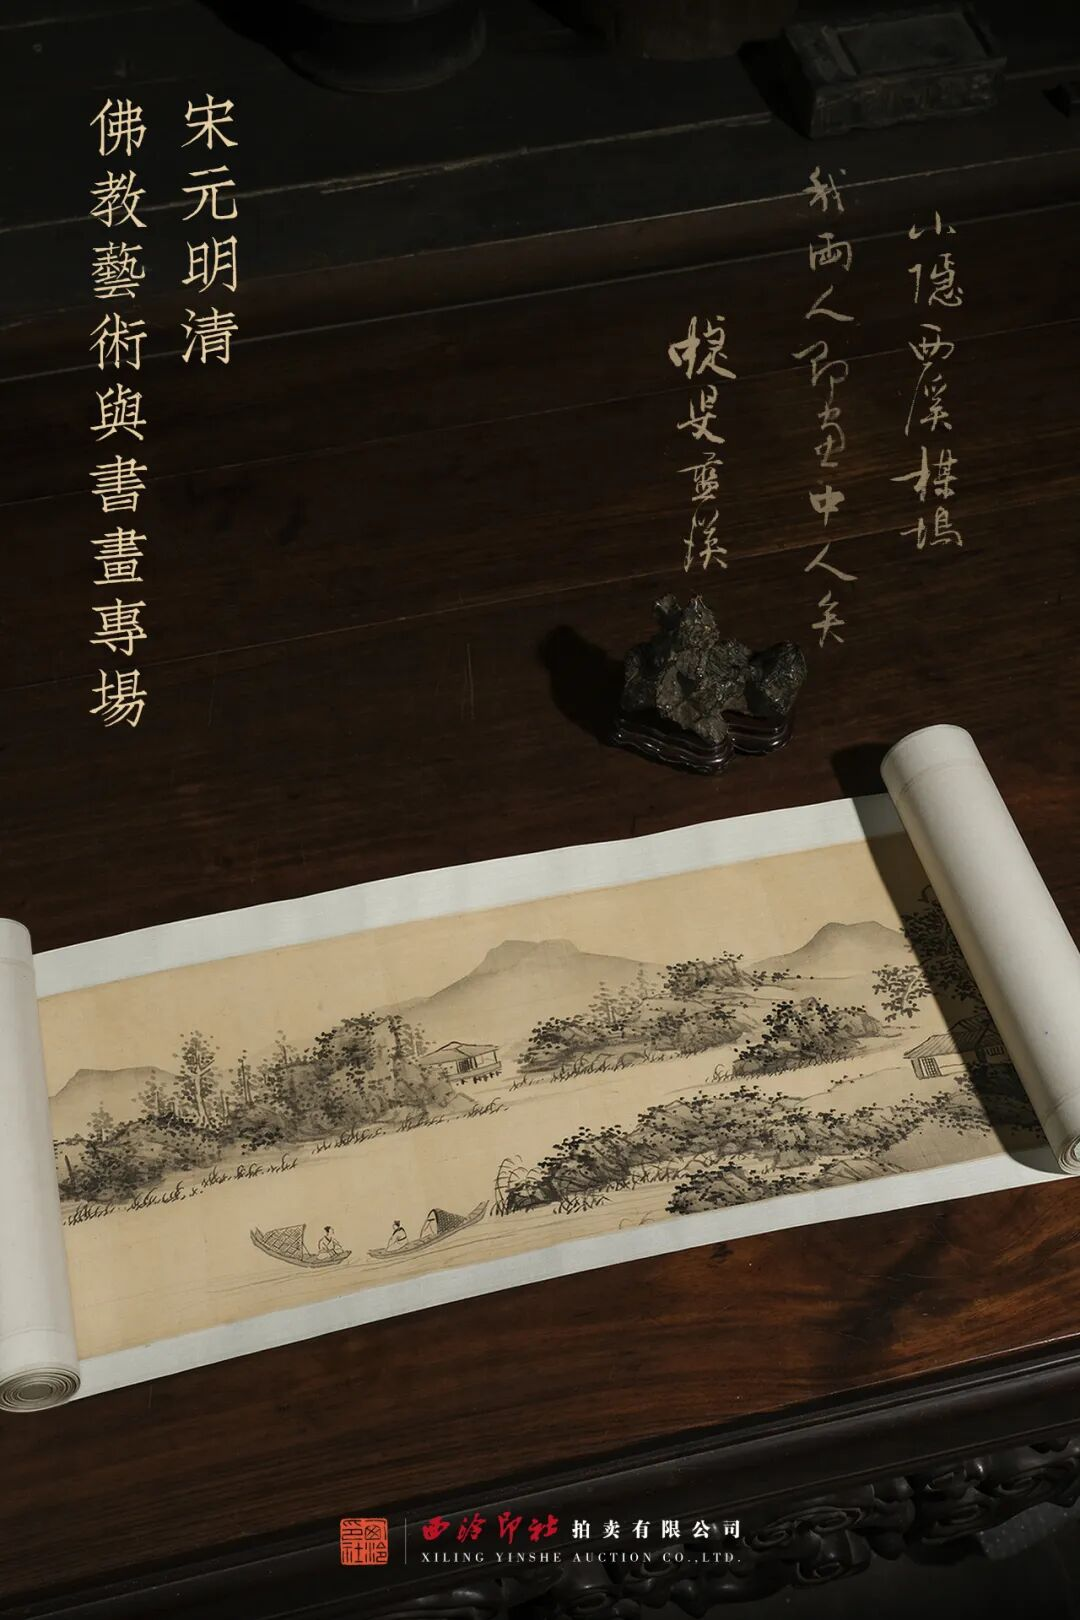 宋元明清
佛教藝術與書畫專場
小隱西溪楳塢
我兩人即畫中人矣
蜨叟藍瑛
西泠印社
西泠印社拍卖有限公司
XILING YINSHE AUCTION CO.,LTD.